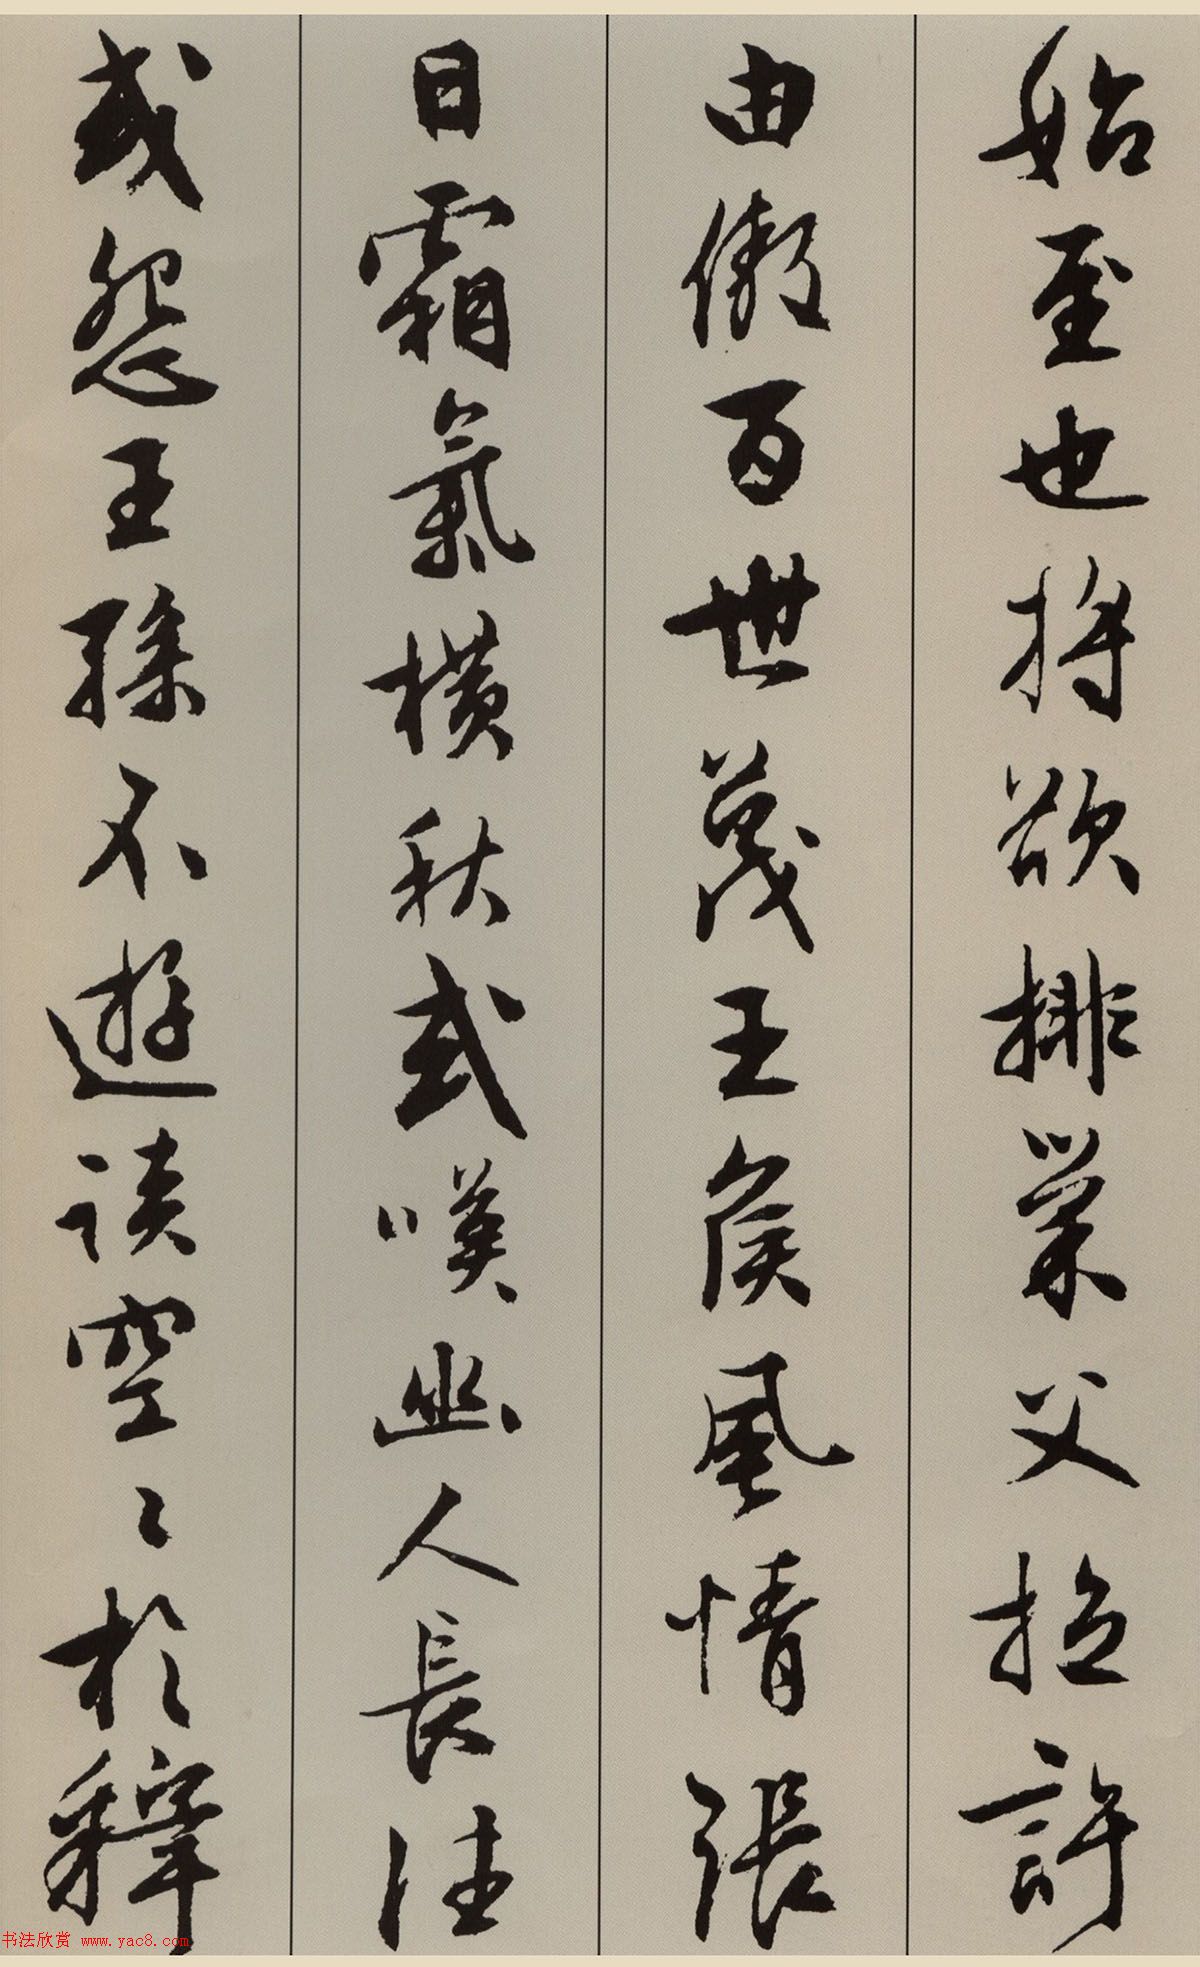 始至也將欲排巢父拉許
由傲百世蔑王侯風情張
日霜氣橫秋或嘆幽人長往
或怨王孫不遊談空〻於釋
书法欣赏 www.yac8.com